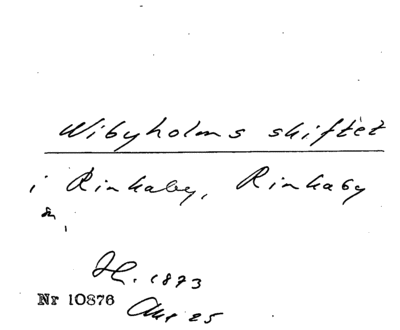 Wibyholms skiftet
i Rinkaby, Rinkaby
sn,
H. 1873
Nr 10876
Akt 25